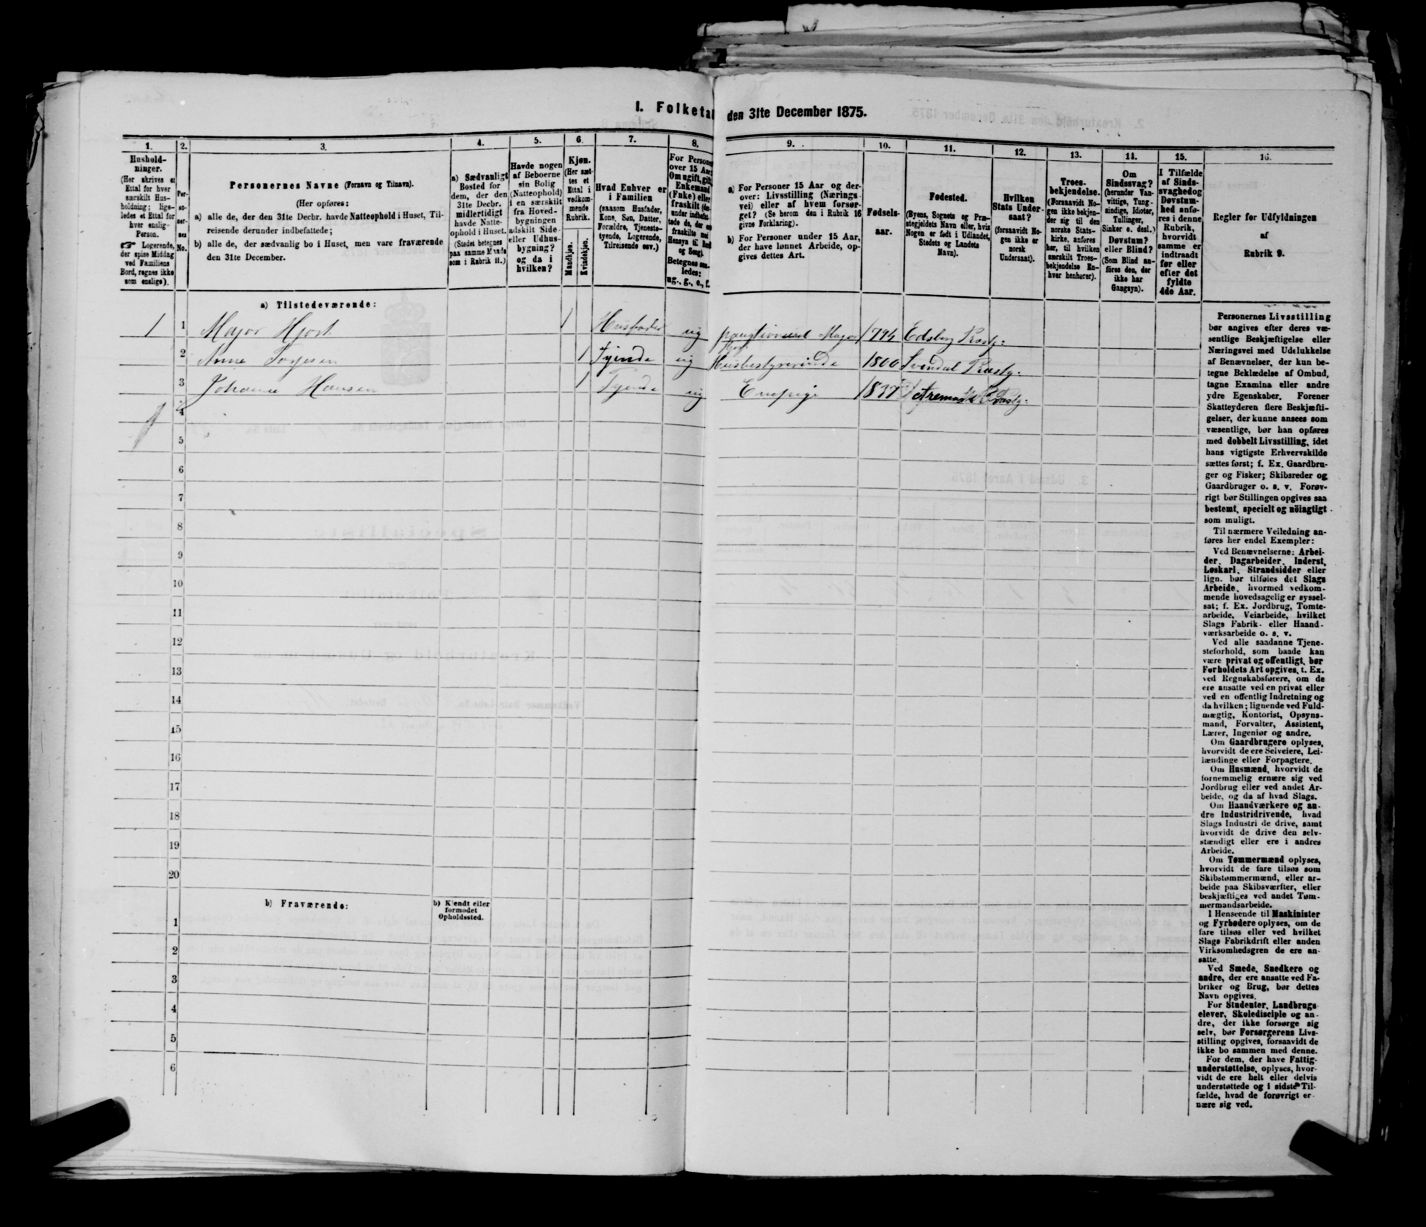 I. Folketal
den 31te December 1875.
1.
Hushold-
ninger.
(Her skrives et
Ettal for hver
særskilt Hus-
holdning; lige-
ledes et Ettal for
hver enslig
Person.
☞ Logerende,
der spise Middag
ved Familiens
Bord, regnes ikke
som enslige).
2.
Per-
so-
ner-
nes
No.
3.
Personernes Navne (Fornavn og Tilnavn).
(Her opføres:
a) alle de, der den 31te Decbr. havde Natteophold i Huset, Til-
reisende derunder indbefattede;
b) alle de, der sædvanlig bo i Huset, men vare fraværende
den 31te December.
4.
a) Sædvanligt
Bosted for
dem, der den
31te Decbr.
midlertidigt
havde Natte-
ophold i Huset.
(Stedet betegnes
paa samme Maade
som i Rubrik 11.)
5.
Havde nogen
af Beboerne
sin Bolig
(Natteophold)
i en særskilt
fra Hoved-
bygningen
adskilt Side-
eller Udhus-
bygning?
og da i
hvilken?
6.
Kjøn.
(Her sæt-
tes et
Ettal i
vedkom-
mende
Rubrik.
Mandkjøn.
Kvindekjøn.
7.
Hvad Enhver er
i Familien
(saasom Husfader,
Kone, Søn, Datter,
Forældre, Tjeneste-
tyende, Logerende,
Tilreisende osv.)
8.
For Personer
over 15 Aar:
Om ugift, gift,
Enkemand
(Enke) eller
fraskilt
9.
a) For Personer 15 Aar og der-
over: Livsstilling (Nærings-
vei) eller af hvem forsør-
get? (Se herom den i Rubrik 16
givne Forklaring).
b) For Personer under 15 Aar,
der have lønnet Arbeide, op-
gives dettes Art.
10.
Fødsels-
aar.
11.
Fødested.
(Byens, Sognets og Præ-
stegjeldets Navn eller, hvis
Nogen er født i Udlandet,
Stedets og Landets
Navn).
12.
Hvilken
Stats Under-
saat?
(forsaavidt No-
gen ikke er
norsk
Undersaat).
13.
Troes-
bekjendelse.
(Forsaavidt No-
gen ikke bekjen-
der sig til den
norske Stats-
kirke, anføres
her, til hvilken
særskilt Troes-
bekjendelse En-
hver henhører).
14.
Om
Sindssvag?
(herunder Van-
vittige, Tung-
sindige, Idioter,
Tullinger,
Sinker o. desl.)
Døvstum?
eller Blind?
(Som Blind an-
føres den, der
ikke har
Gangsyn).
15.
I Tilfælde
af Sinds-
svaghed og
Døvstum-
hed anfø-
res i denne
Rubrik,
hvorvidt
samme er
indtraadt
før eller
efter det
fyldte
4de Aar.
16.
Regler for Udfyldningen
af
Rubrik 9.
a) Tilstedeværende:
1 1 Major Hjort 1 Husfader ug pensioneret Major 1794 Edsberg Præstg.
2 Anne 1 Tjende ug Husbestyrerinde 1800 Præstg.
3 Johanne Hansen 1 Tjende ug Enepige Præstg.
4
5
6
7
8
9
10
11
12
13
14
15
16
17
18
19
20
b) Fraværende:
b) Kjendt eller
formodet
Opholdssted.
1
2
3
4
5
6
Personernes Livsstilling
bør angives efter deres væ-
sentlige Beskjæftigelse eller
Næringsvei med Udelukkelse
af Benævnelser, der kun be-
tegne Beklædelse af Ombud,
tagne Examina eller andre
ydre Egenskaber. Forener
Skatteyderen flere Beskjæfti-
gelser, der kunne ansees som
væsentlige, bør han opføres
med dobbelt Livsstilling, idet
hans vigtigste Erhvervskilde
sættes først; f. Ex. Gaardbru-
ger og Fisker; Skibsreder og
Gaardbruger o. s. v. Forøv-
rigt bør Stillingen opgives saa
bestemt, specielt og nöiagtigt
som muligt.
Til nærmere Veiledning an-
føres her endel Exempler:
Ved Benævnelserne: Arbei-
der, Dagarbeider, Inderst,
Løskarl, Strandsidder eller
lign. bør tilføies det Slags
Arbeide, hvormed vedkom-
mende hovedsagelig er syssel-
sat; f. Ex. Jordbrug, Tomte-
arbeide, Veiarbeide, hvilket
Slags Fabrik- eller Haand-
værksarbeide o. s. v.
Ved alle saadanne Tjene-
steforhold, som baade kan
være privat og offentligt, bør
Forholdets Art opgives, t. Ex.
ved Regnskabsførere, om de
ere ansatte ved en privat eller
ved en offentlig Indretning og
da hvilken; lignende ved Fuld-
mægtig, Kontorist, Opsyns-
mand, Forvalter, Assistent,
Lærer, Ingeniør og andre.
Om Gaardbrugere oplyses,
hvorvidt de ere Selveiere, Lei-
lændinge eller Forpagtere.
Om Husmænd, hvorvidt de
fornemmelig ernære sig ved
Jordbrug eller ved andet Ar-
beide, og da af hvad Slags.
Om Haandværkere og an-
dre Industridrivende, hvad
Slags Industri de drive, samt
hvorvidt de drive den selv-
stændigt eller ere i andres
Arbeide.
Om Tømmermænd oplyses,
hvorvidt de fare tilsøs som
Skibstømmermænd, eller ar-
beide paa Skibsværfter, eller
beskjæftiges ved andet Tøm-
mermandsarbeide.
I Henseende til Maskinister
og Fyrbødere oplyses, om de
fare tilsøs eller ved hvilket
Slags Fabrikdrift eller anden
Virksomhedsgren de ere an-
satte.
Ved Smede, Snedkere og
andre, der ere ansatte ved Fa-
briker og Brug, bør dettes
Navn opgives.
For Studenter, Landbrugs-
elever, Skoledisciple og an-
dre, der ikke forsørge sig
selv, bør Forsørgerens Livs-
stilling opgives, forsaavidt de
ikke bo sammen med denne.
For dem, der have Fattig-
understøttelse, oplyses, hvor-
vidt de ere helt eller delvis
understøttede og i sidste Til-
fælde, hvad de forøvrigt er-
nære sig ved.